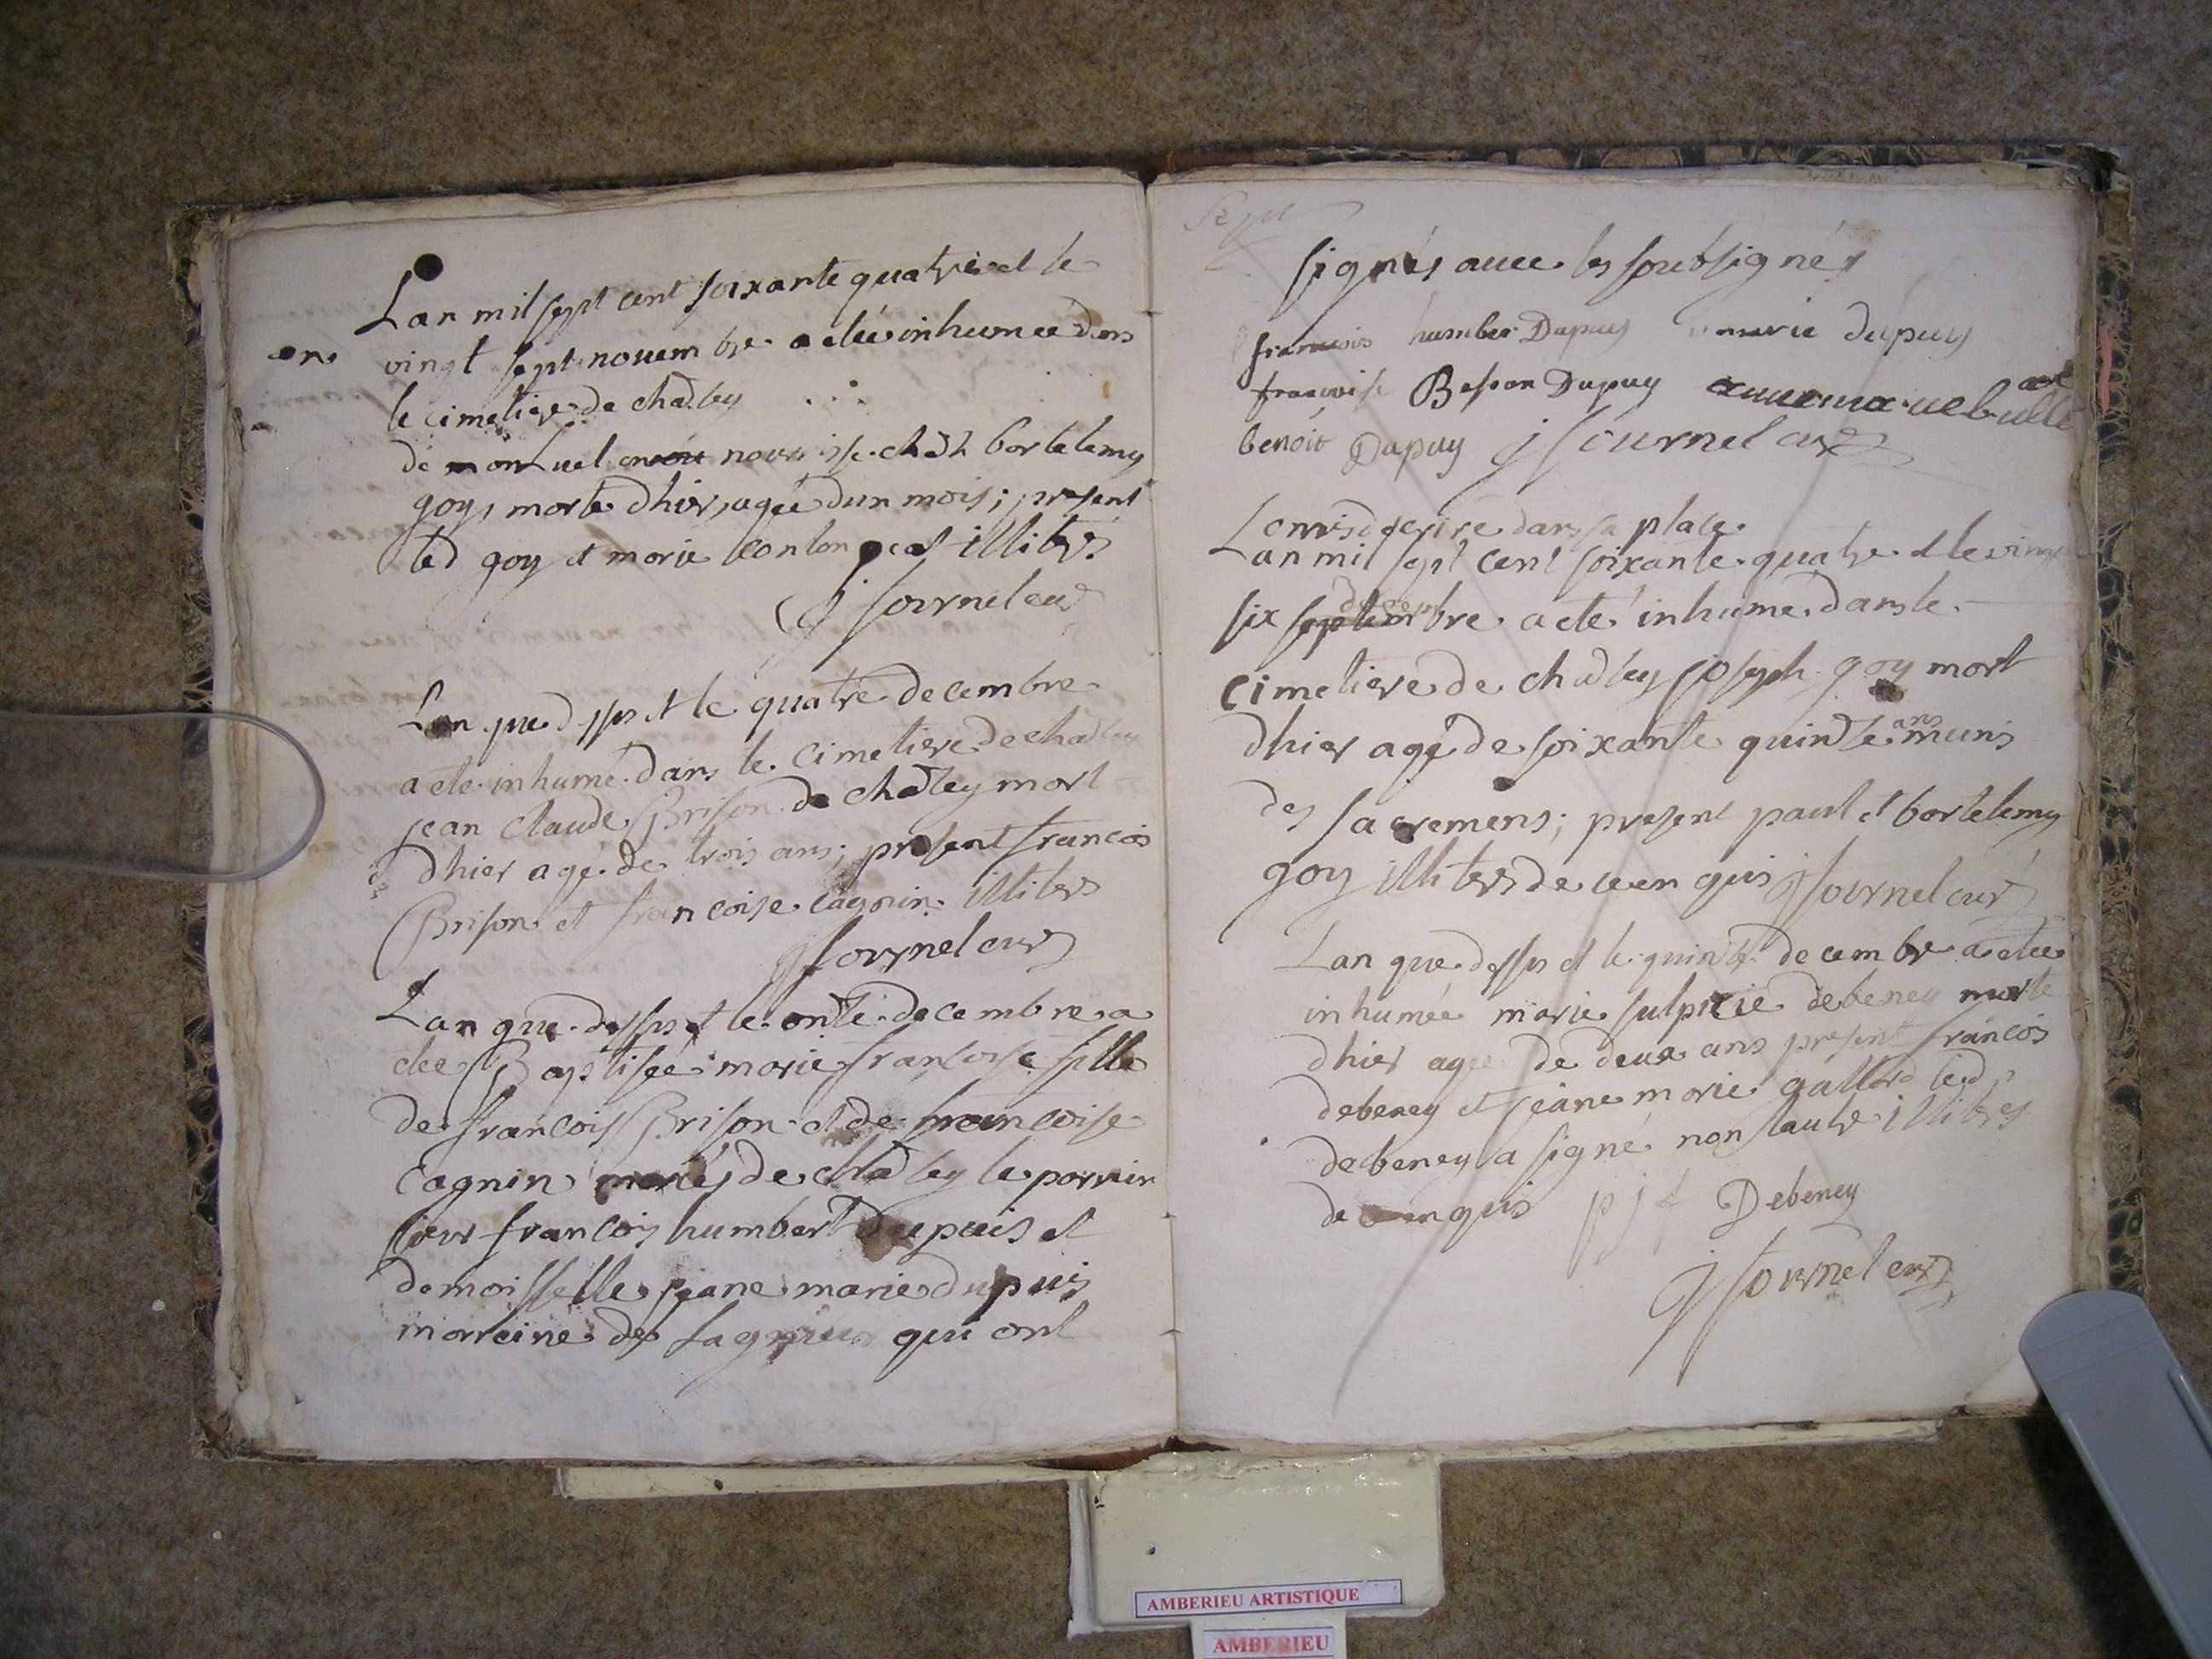 Lan mil sept cent soixante quatre et le
vingt sept novembre a eté inhumée dans
le cimetiere de chazey
de monluel en nourisse chez bartelemy
goy, morte dhier, agée dun mois; present
led goy et marie illiteres
j fournel curé
Lan que dessus et le quatre decembre
a eté inhumé dans le cimetiere de chazey
jean claude Brison de chazey mort
dhier agé de trois ans; present francois
Brison et francoise cagnin illiteres
j fournel curé
Lan que dessus et le onze decembre a
etée Baptisée marie francoise fille
de francois Brison et de francoise
Cagnin mariés de chazey le parrain
sieur francois humbert dupuis et
demoisselle jeane marie dupuis
marreine de Lagnieu qui ont
Sept
signés avec les soubsignés
francois humber Dupuy marie dupuy
francoise Besson Dupuy
benoit Dupuy j fournel curé
omis decrire dans sa place
Lan mil sept cent soixante quatre et le vingt
six septembre a eté inhumé dans le
cimetiere de chazey joseph goy mort
dhier agé de soixante quinze ans munis
des sacremens; present paul et bartelemy
goy illiteres de ce enquis j fournel curé
Lan que dessus et le quinze decembre a etée
inhumée marie sulpicie debeney morte
dhier agee de deux ans present francois
debeney et jeane marie gallard led
debeney a signé non lautre illiteres
de enquis p j f Debeney
j fournel curé
AMBERIEU ARTISTIQUE
AMBERIEU